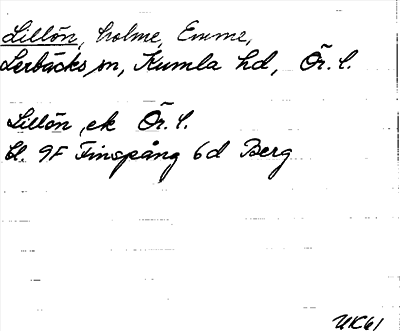 Lillön, holme, Emme,
Lerbäcks sn, Kumla hd, Ör. l.
Lillön, ek Ör. l.
bl. 9F Finspång 6d Berg
UK61